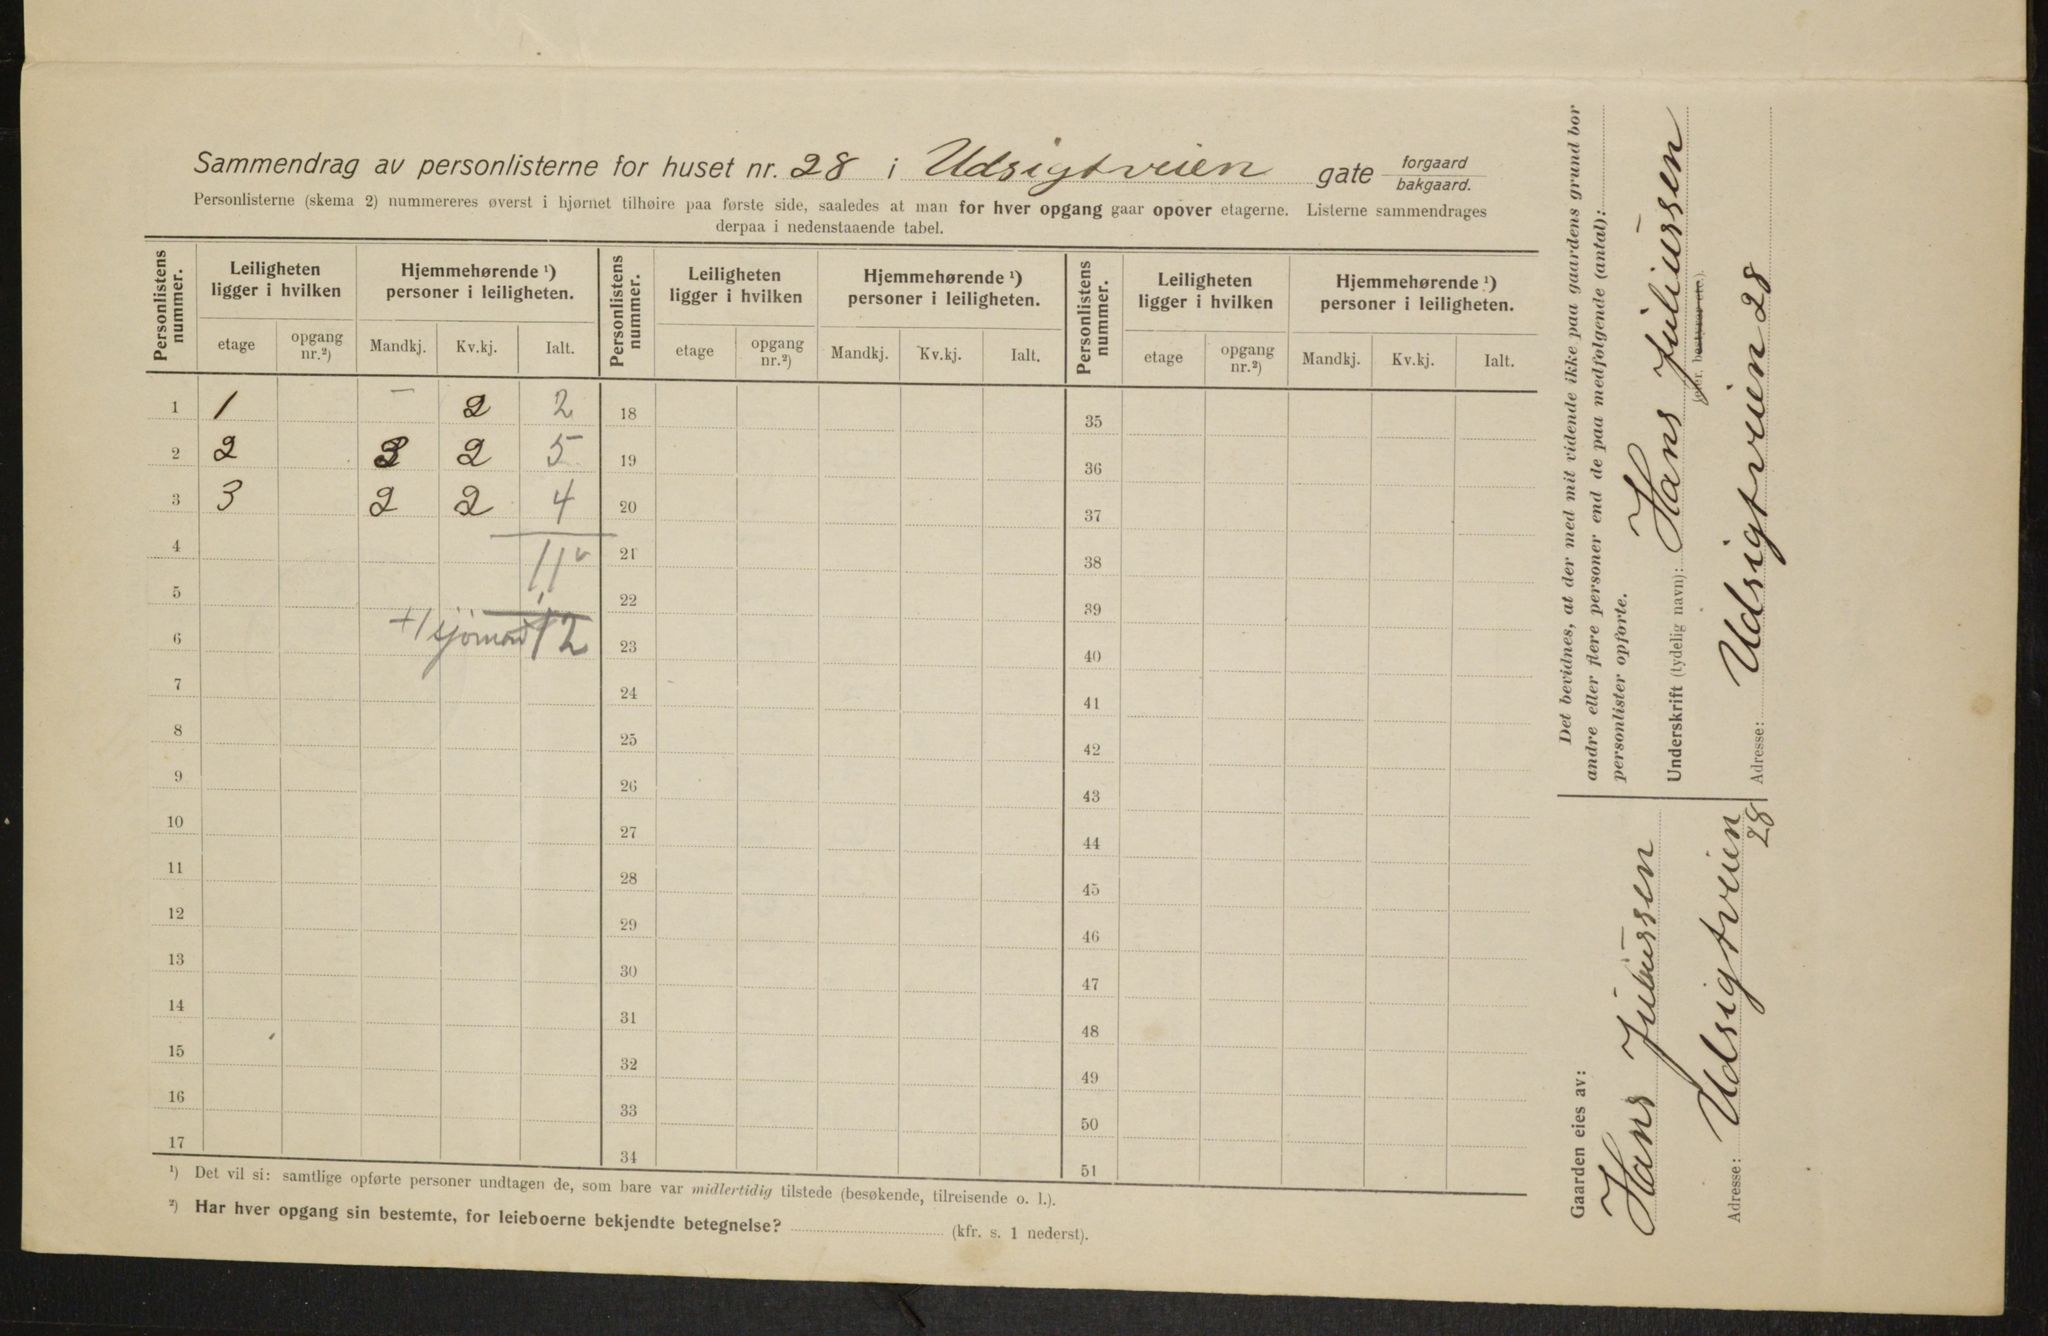 Sammendrag av personlisterne for huset nr. 28 i Udsigtveien gate forgaard bakgaard.
Personlisterne (skema 2) nummereres øverst i hjørnet tilhøire paa første side, saaledes at man for hver opgang gaar opover etagerne. Listerne sammendrages
derpaa i nedenstaaende tabel.
Personlistens nummer. Leiligheten ligger i hvilken Hjemmehørende ¹) personer i leiligheten. Personlistens nummer. Leiligheten ligger i hvilken Hjemmehørende ¹) personer i leiligheten. Personlistens nummer. Leiligheten ligger i hvilken Hjemmehørende ¹) personer i leiligheten.
etage opgang nr.²) Mandkj. Kv.kj. Ialt. etage opgang nr.²) Mandkj. Kv.kj. Ialt. etage opgang nr.²) Mandkj. Kv.kj. Ialt.
1 1 – 2 2 18 35
2 2 3 2 5 19 36
3 3 2 2 4 20 37
4 11 21 38
5 22 39
6 +1 sjømand 12 23 40
7 24 41
8 25 42
9 26 43
10 27 44
11 28 45
12 29 46
13 30 47
14 31 48
15 32 49
16 33 50
17 34 51
¹) Det vil si: samtlige opførte personer undtagen de, som bare var midlertidig tilstede (besøkende, tilreisende o. l.).
²) Har hver opgang sin bestemte, for leieboerne bekjendte betegnelse? (kfr. s. 1 nederst).
Det bevidnes, at der med mit vidende ikke paa gaardens grund bor
andre eller flere personer end de paa medfølgende (antal):
personlister opførte.
Underskrift (tydelig navn): Hans Juliussen
(eier, bestyrer etc.).
Adresse: Udsigtveien 28
Gaarden eies av:
Hans Juliussen
Adresse: Udsigtveien
28